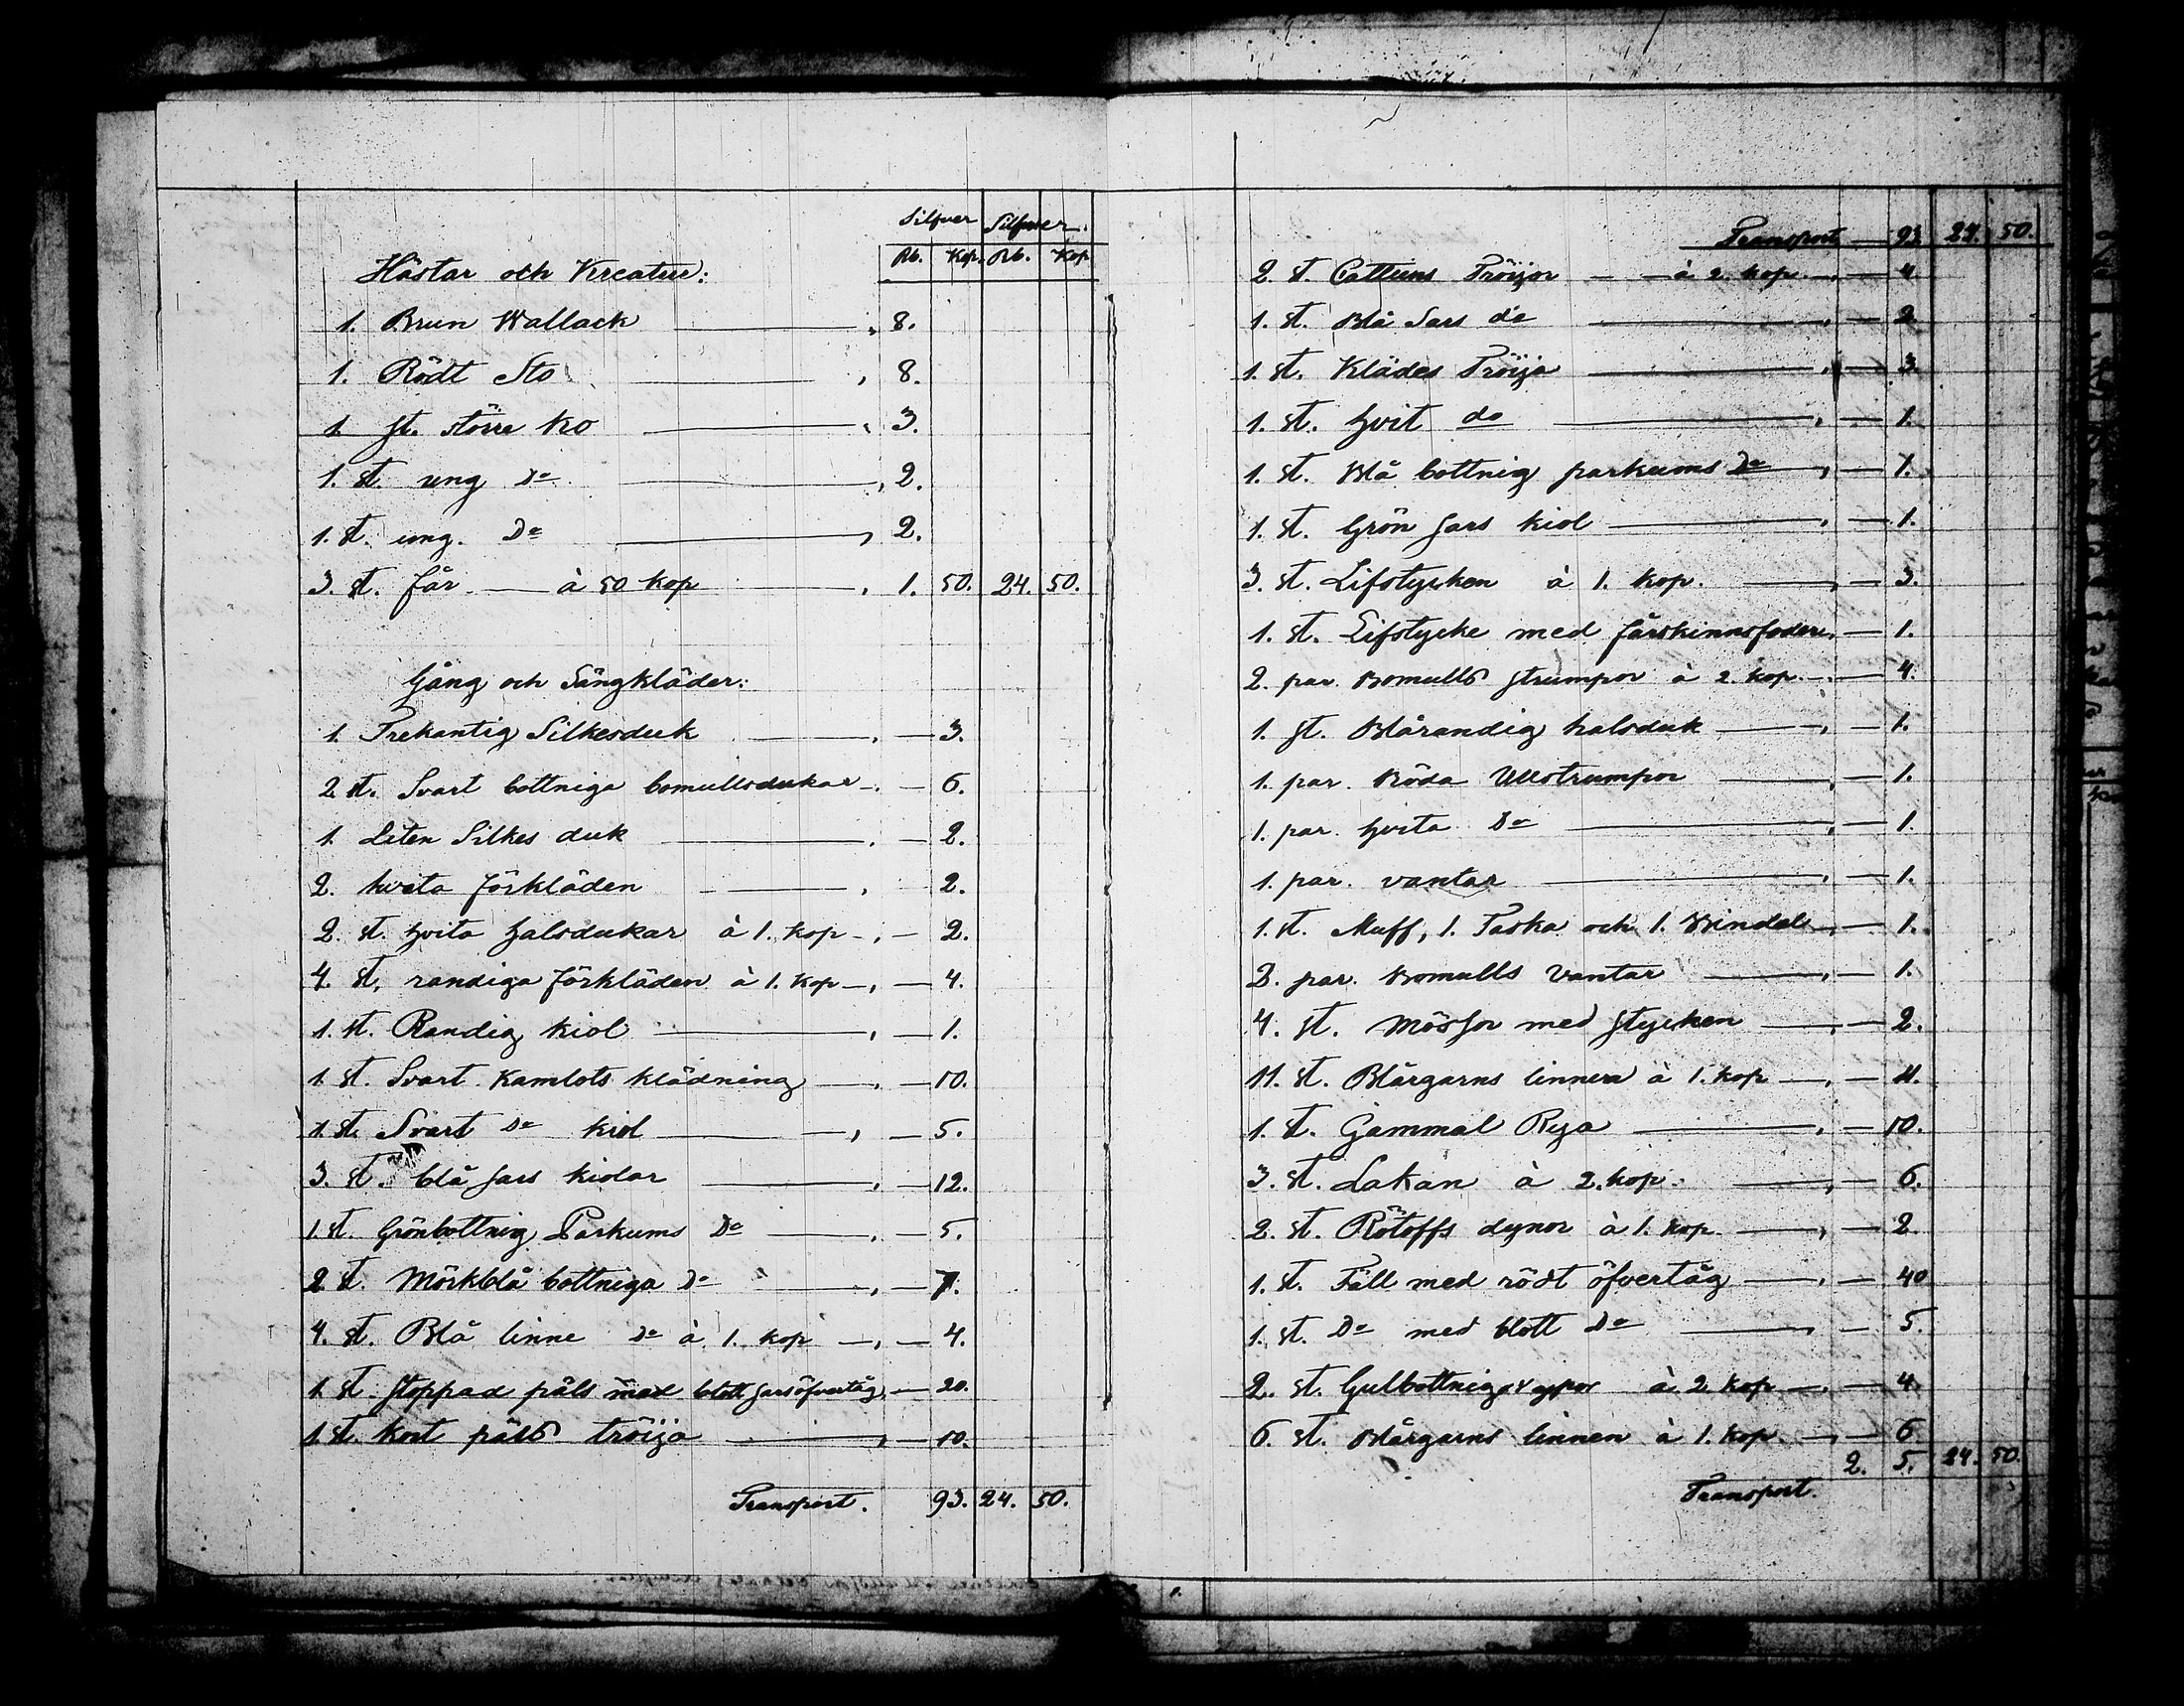 Silfver Silfver.
Rb. Kop. Rb. Kop
Hästar och Kreatur:
1. Brun Wallack — „ 8.
1. Rödt Sto — „ 8.
1. st. större ko — „ 3.
1. st. ung Do — „ 2.
1. st. ung. Do — „ 2.
3. st. får — à 50 kop — „ 1. 50. 24. 50.
Gång och Sängkläder:
1. Trekantig Silkesduk — „ — 3.
2 st. Svart bottniga bomullsdukar — „ — 6.
1. Liten Silkes duk — „ — 2.
2. hvita förkläden — „ 2.
2. st. hvita halsdukar à 1. kop — „ — 2.
4. st. randiga förkläden à 1. kop — „ — 4.
1. st. Randig kiol — „ — 1.
1. st. Svart Kamlots klädning — „ — 10.
1. st. Svart Do kiol — „ — 5.
3. st. blå sars kiolar — „ — 12.
1. st. Grönbottnig Parkums Do — „ — 5.
2 st. Mörkblå bottniga Do — „ — 7.
4. st. Blå linne Do à 1. kop — „ — 4.
1. st. stoppad päls med blott sarsöfvertåg — 20.
1. st. kort päls tröija — „ — 10.
Transport. 93. 24. 50.
Transport — 93 24. 50.
2. st. Cattuns Tröijor — à 2. kop — „ — 4.
1. st. Blå Sars do — „ — 2
1. st. Klädes Tröija — „ — 3.
1. st. hvit do — „ — 1.
1. st. Blå bottnig parkums Do — „ — 1.
1. st. Grön sars kiol — „ — 1.
3. st. Lifstycken à 1. kop. — „ — 3.
1. st. Lifstycke med fårskinnsfoder „ — 1.
2. par Bomulls strumpor à 2. kop. — „ — 4.
1. st. Blårandig halsduk — „ — 1.
1. par. Röda Ullstrumpor — „ — 1.
1. par. hvita Do — „ — 1.
1. par. vantar — „ — 1.
1. st. Muff, 1. Taska och 1. Bindel — „ — 1.
2. par. Bomulls Vantar — „ — 1.
4. st. Mössor med stycken — „ — 2.
11. st. Blårgarns linnen à 1. kop — „ — 11.
1. st. Gammal Rya — „ — 10.
3. st. Lakan à 2. kop. — „ — 6.
2. st. Rötoffs dynor à 1. kop. — „ — 2.
1. st. Fäll med rödt öfvertåg — „ — 40
1. st. Do med blott Do — „ — 5.
2. st. Gulbottniga à 2 kop — „ — 4
6. st. Blårgarns linnen à 1. kop. — „ — 6
2. 5. 24. 50.
Transport.